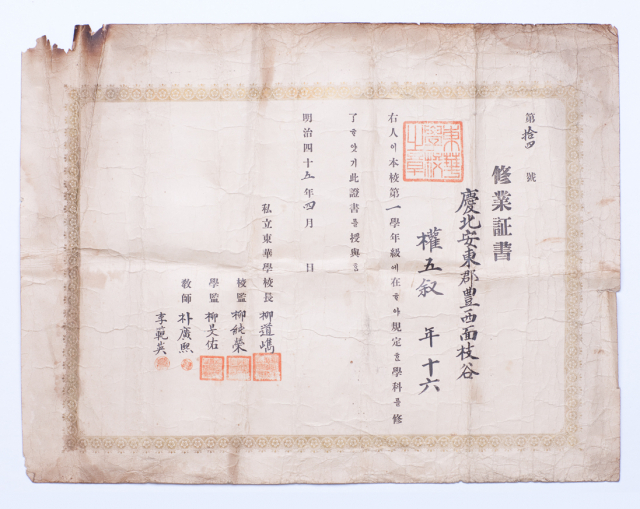 第拾四號
修業証書
慶北安東郡豊西面枝谷
權五敘 年十六
右人이本校第一學年級에在ᄒᆞ야規定ᄒᆞᆫ學科를修
了ᄒᆞ얏기此證書를授與홈
明治四十五年四月 日
私立東華學校長 柳道
校監 柳 榮
學監 柳旻佑
教師 朴廣熙
李範英
東華學校之章